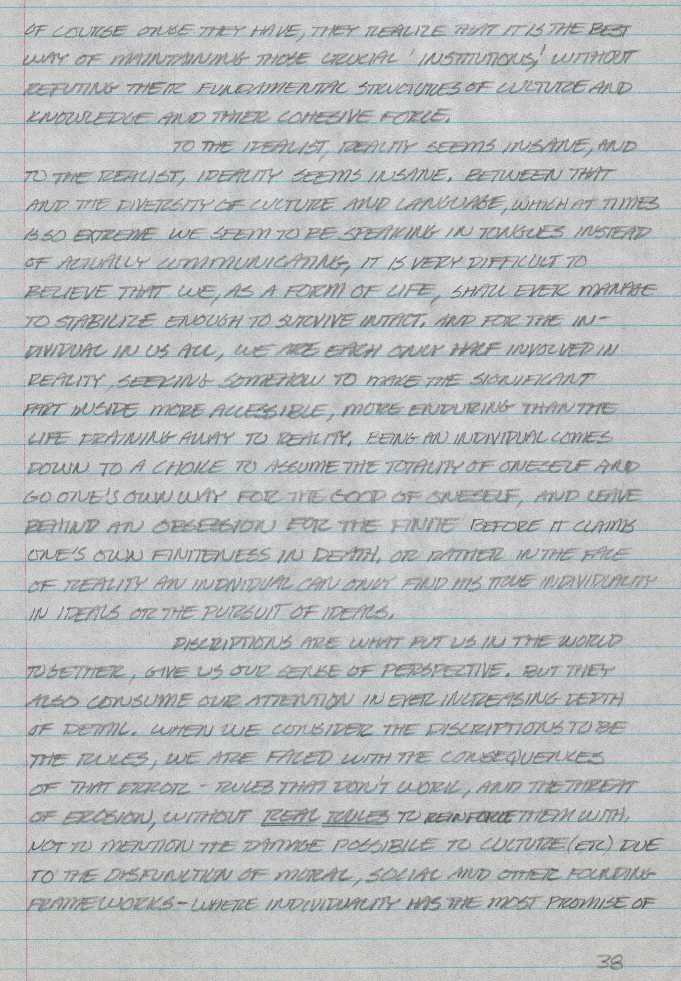 OF COURSE ONCE THEY HAVE, THEY REALIZE THAT IT IS THE BEST
WAY OF MAINTAINING THOSE CRUCIAL 'INSTITUTIONS,' WITHOUT
REFUTING THEIR FUNDAMENTAL STRUCTURES OF CULTURE AND
KNOWLEDGE AND THIER COHESIVE FORCE.
TO THE IDEALIST, REALITY SEEMS INSANE, AND
TO THE REALIST, IDEALITY SEEMS INSANE. BETWEEN THAT
AND THE DIVERSITY OF CULTURE AND LANGUAGE, WHICH AT TIMES
IS SO EXTREME WE SEEM TO BE SPEAKING IN TONGUES INSTEAD
OF ACTUALLY COMMUNICATING, IT IS VERY DIFFICULT TO
BELIEVE THAT WE, AS A FORM OF LIFE, SHALL EVER MANAGE
TO STABILIZE ENOUGH TO SURVIVE INTACT. AND FOR THE IN-
DIVIDUAL IN US ALL, WE ARE EACH ONLY HALF INVOLVED IN
REALITY, SEEKING SOMEHOW TO MAKE THE SIGNIFICANT
PART INSIDE MORE ACCESSIBLE, MORE ENDURING THAN THE
LIFE DRAINING AWAY TO REALITY. BEING AN INDIVIDUAL COMES
DOWN TO A CHOICE TO ASSUME THE TOTALITY OF ONESELF AND
GO ONE'S OWN WAY FOR THE GOOD OF ONESELF, AND LEAVE
BEHIND AN OBSESSION FOR THE FINITE BEFORE IT CLAIMS
ONE'S OWN FINITENESS IN DEATH. OR RATHER IN THE FACE
OF REALITY AN INDIVIDUAL CAN ONLY FIND HIS TRUE INDIVIDUALITY
IN IDEALS OR THE PURSUIT OF IDEALS.
DISCRIPTIONS ARE WHAT PUT US IN THE WORLD
TOGETHER, GIVE US OUR SENSE OF PERSPECTIVE. BUT THEY
ALSO CONSUME OUR ATTENTION IN EVER INCREASING DEPTH
OF DETAIL. WHEN WE CONSIDER THE DISCRIPTIONS TO BE
THE RULES, WE ARE FACED WITH THE CONSEQUENCES
OF THAT ERROR - RULES THAT DON'T WORK, AND THE THREAT
OF EROSION, WITHOUT REAL RULES TO REINFORCE THEM WITH.
NOT TO MENTION THE DAMAGE POSSIBILE TO CULTURE (ETC) DUE
TO THE DISFUNCTION OF MORAL, SOCIAL AND OTHER FOUNDING
FRAMEWORKS - WHERE INDIVIDUALITY HAS THE MOST PROMISE OF
38